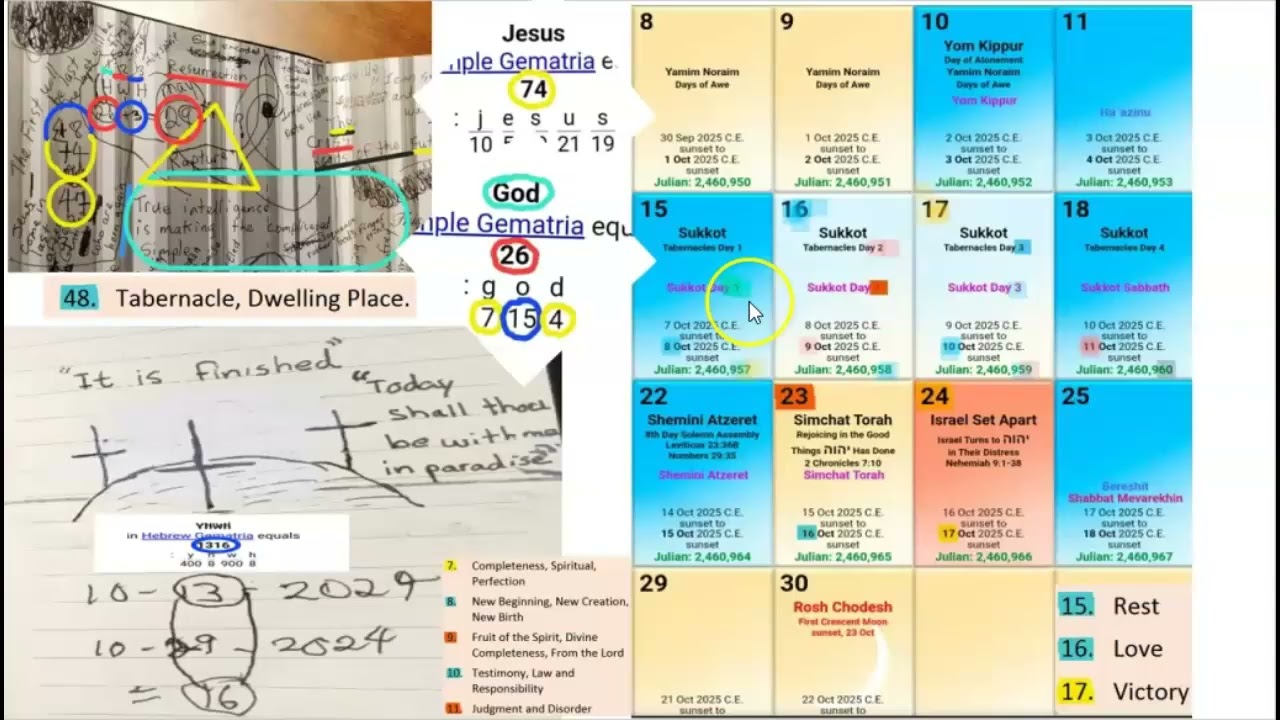 Resurrection
May
48
74
29
47
Rapture
True intelligence
is making the complicated
Simple
48. Tabernacle, Dwelling Place.
Jesus
ple Gematria e
74
: j e s u s
10 21 19
God
ple Gematria equ
26
: g o d
7 15 4
"It is finished"
"Today
shall thou
be with me
in paradise"
YHWH
in Hebrew Gematria equals
1316
: y h w h
400 8 900 8
10 - 13 - 2029
10 - 29 - 2024
= 16
7. Completeness, Spiritual,
Perfection
8. New Beginning, New Creation,
New Birth
9. Fruit of the Spirit, Divine
Completeness, From the Lord
10. Testimony, Law and
Responsibility
11. Judgment and Disorder
8
Yamim Noraim
Days of Awe
30 Sep 2025 C.E.
sunset to
1 Oct 2025 C.E.
sunset
Julian: 2,460,950
9
Yamim Noraim
Days of Awe
1 Oct 2025 C.E.
sunset to
2 Oct 2025 C.E.
sunset
Julian: 2,460,951
10
Yom Kippur
Day of Atonement
Yamim Noraim
Days of Awe
Yom Kippur
2 Oct 2025 C.E.
sunset to
3 Oct 2025 C.E.
sunset
Julian: 2,460,952
11
Ha'azinu
3 Oct 2025 C.E.
sunset to
4 Oct 2025 C.E.
sunset
Julian: 2,460,953
15
Sukkot
Tabernacles Day 1
Sukkot Day 1
7 Oct 2025 C.E.
sunset to
8 Oct 2025 C.E.
sunset
Julian: 2,460,957
16
Sukkot
Tabernacles Day 2
Sukkot Day
8 Oct 2025 C.E.
sunset to
9 Oct 2025 C.E.
sunset
Julian: 2,460,958
17
Sukkot
Tabernacles Day 3
Sukkot Day 3
9 Oct 2025 C.E.
sunset to
10 Oct 2025 C.E.
sunset
Julian: 2,460,959
18
Sukkot
Tabernacles Day 4
Sukkot Sabbath
10 Oct 2025 C.E.
sunset to
11 Oct 2025 C.E.
sunset
Julian: 2,460,960
22
Shemini Atzeret
8th Day Solemn Assembly
Leviticus 23:36B
Numbers 29:35
Shemini Atzeret
14 Oct 2025 C.E.
sunset to
15 Oct 2025 C.E.
sunset
Julian: 2,460,964
23
Simchat Torah
Rejoicing in the Good
Things יהוה Has Done
2 Chronicles 7:10
Simchat Torah
15 Oct 2025 C.E.
sunset to
16 Oct 2025 C.E.
sunset
Julian: 2,460,965
24
Israel Set Apart
Israel Turns to יהוה
in Their Distress
Nehemiah 9:1-38
16 Oct 2025 C.E.
sunset to
17 Oct 2025 C.E.
sunset
Julian: 2,460,966
25
Bereshit
Shabbat Mevarekhin
17 Oct 2025 C.E.
sunset to
18 Oct 2025 C.E.
sunset
Julian: 2,460,967
29
21 Oct 2025 C.E.
sunset to
30
Rosh Chodesh
First Crescent Moon
sunset, 23 Oct
22 Oct 2025 C.E.
sunset to
15. Rest
16. Love
17. Victory